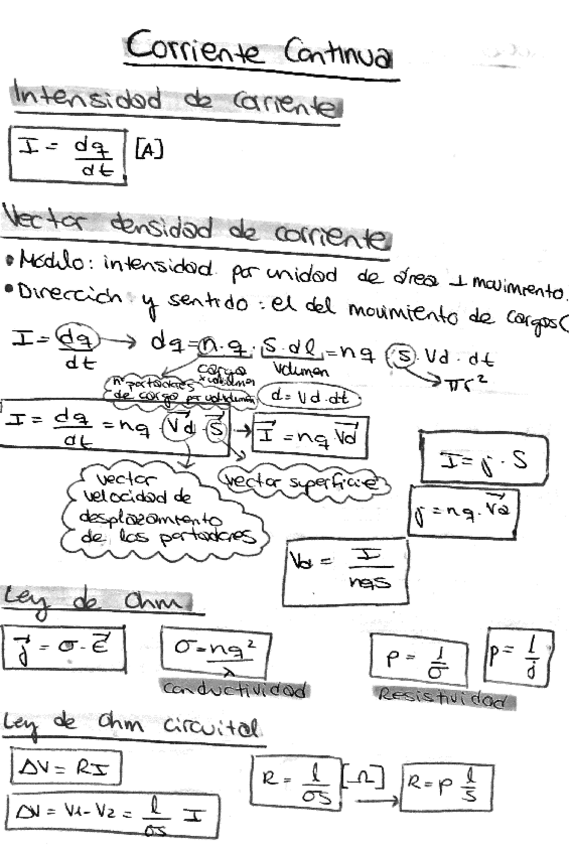 Corriente Continua
Intensidad de corriente
I = dq/dt [A]
Vector densidad de corriente
• Módulo: intensidad por unidad de área ⊥ movimiento.
• Dirección y sentido: el del movimiento de cargas(
I = dq/dt → dq = n·q·S·dl = nq S·Vd·dt
carga volumen → πr²
nº portadores de carga por volumen d = Vd·dt
I = dq/dt = nq V⃗d·S⃗ → I⃗ = nq V⃗d
I = j·S
vector velocidad de desplazamiento de los portadores
vector superficie
j = nq·V⃗d
Vd = I/nqS
Ley de Ohm
j⃗ = σ·E⃗ σ = nq²/λ ρ = 1/σ ρ = 1/j
Conductividad Resistividad
Ley de Ohm circuital
ΔV = RI R = l/σS [Ω] → R = ρ l/S
ΔV = V1 - V2 = l/σS I